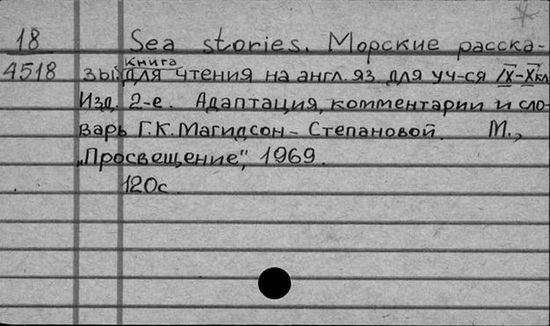 18 Sea stories. Морские расска-
4518 зы: книга для чтения на англ. яз для уч-ся IX-X кл
Изд. 2-е. Адаптация, комментарии и сло-
варь Г.К. Магидсон-Степановой. М.,
„Просвещение", 1969.
120с